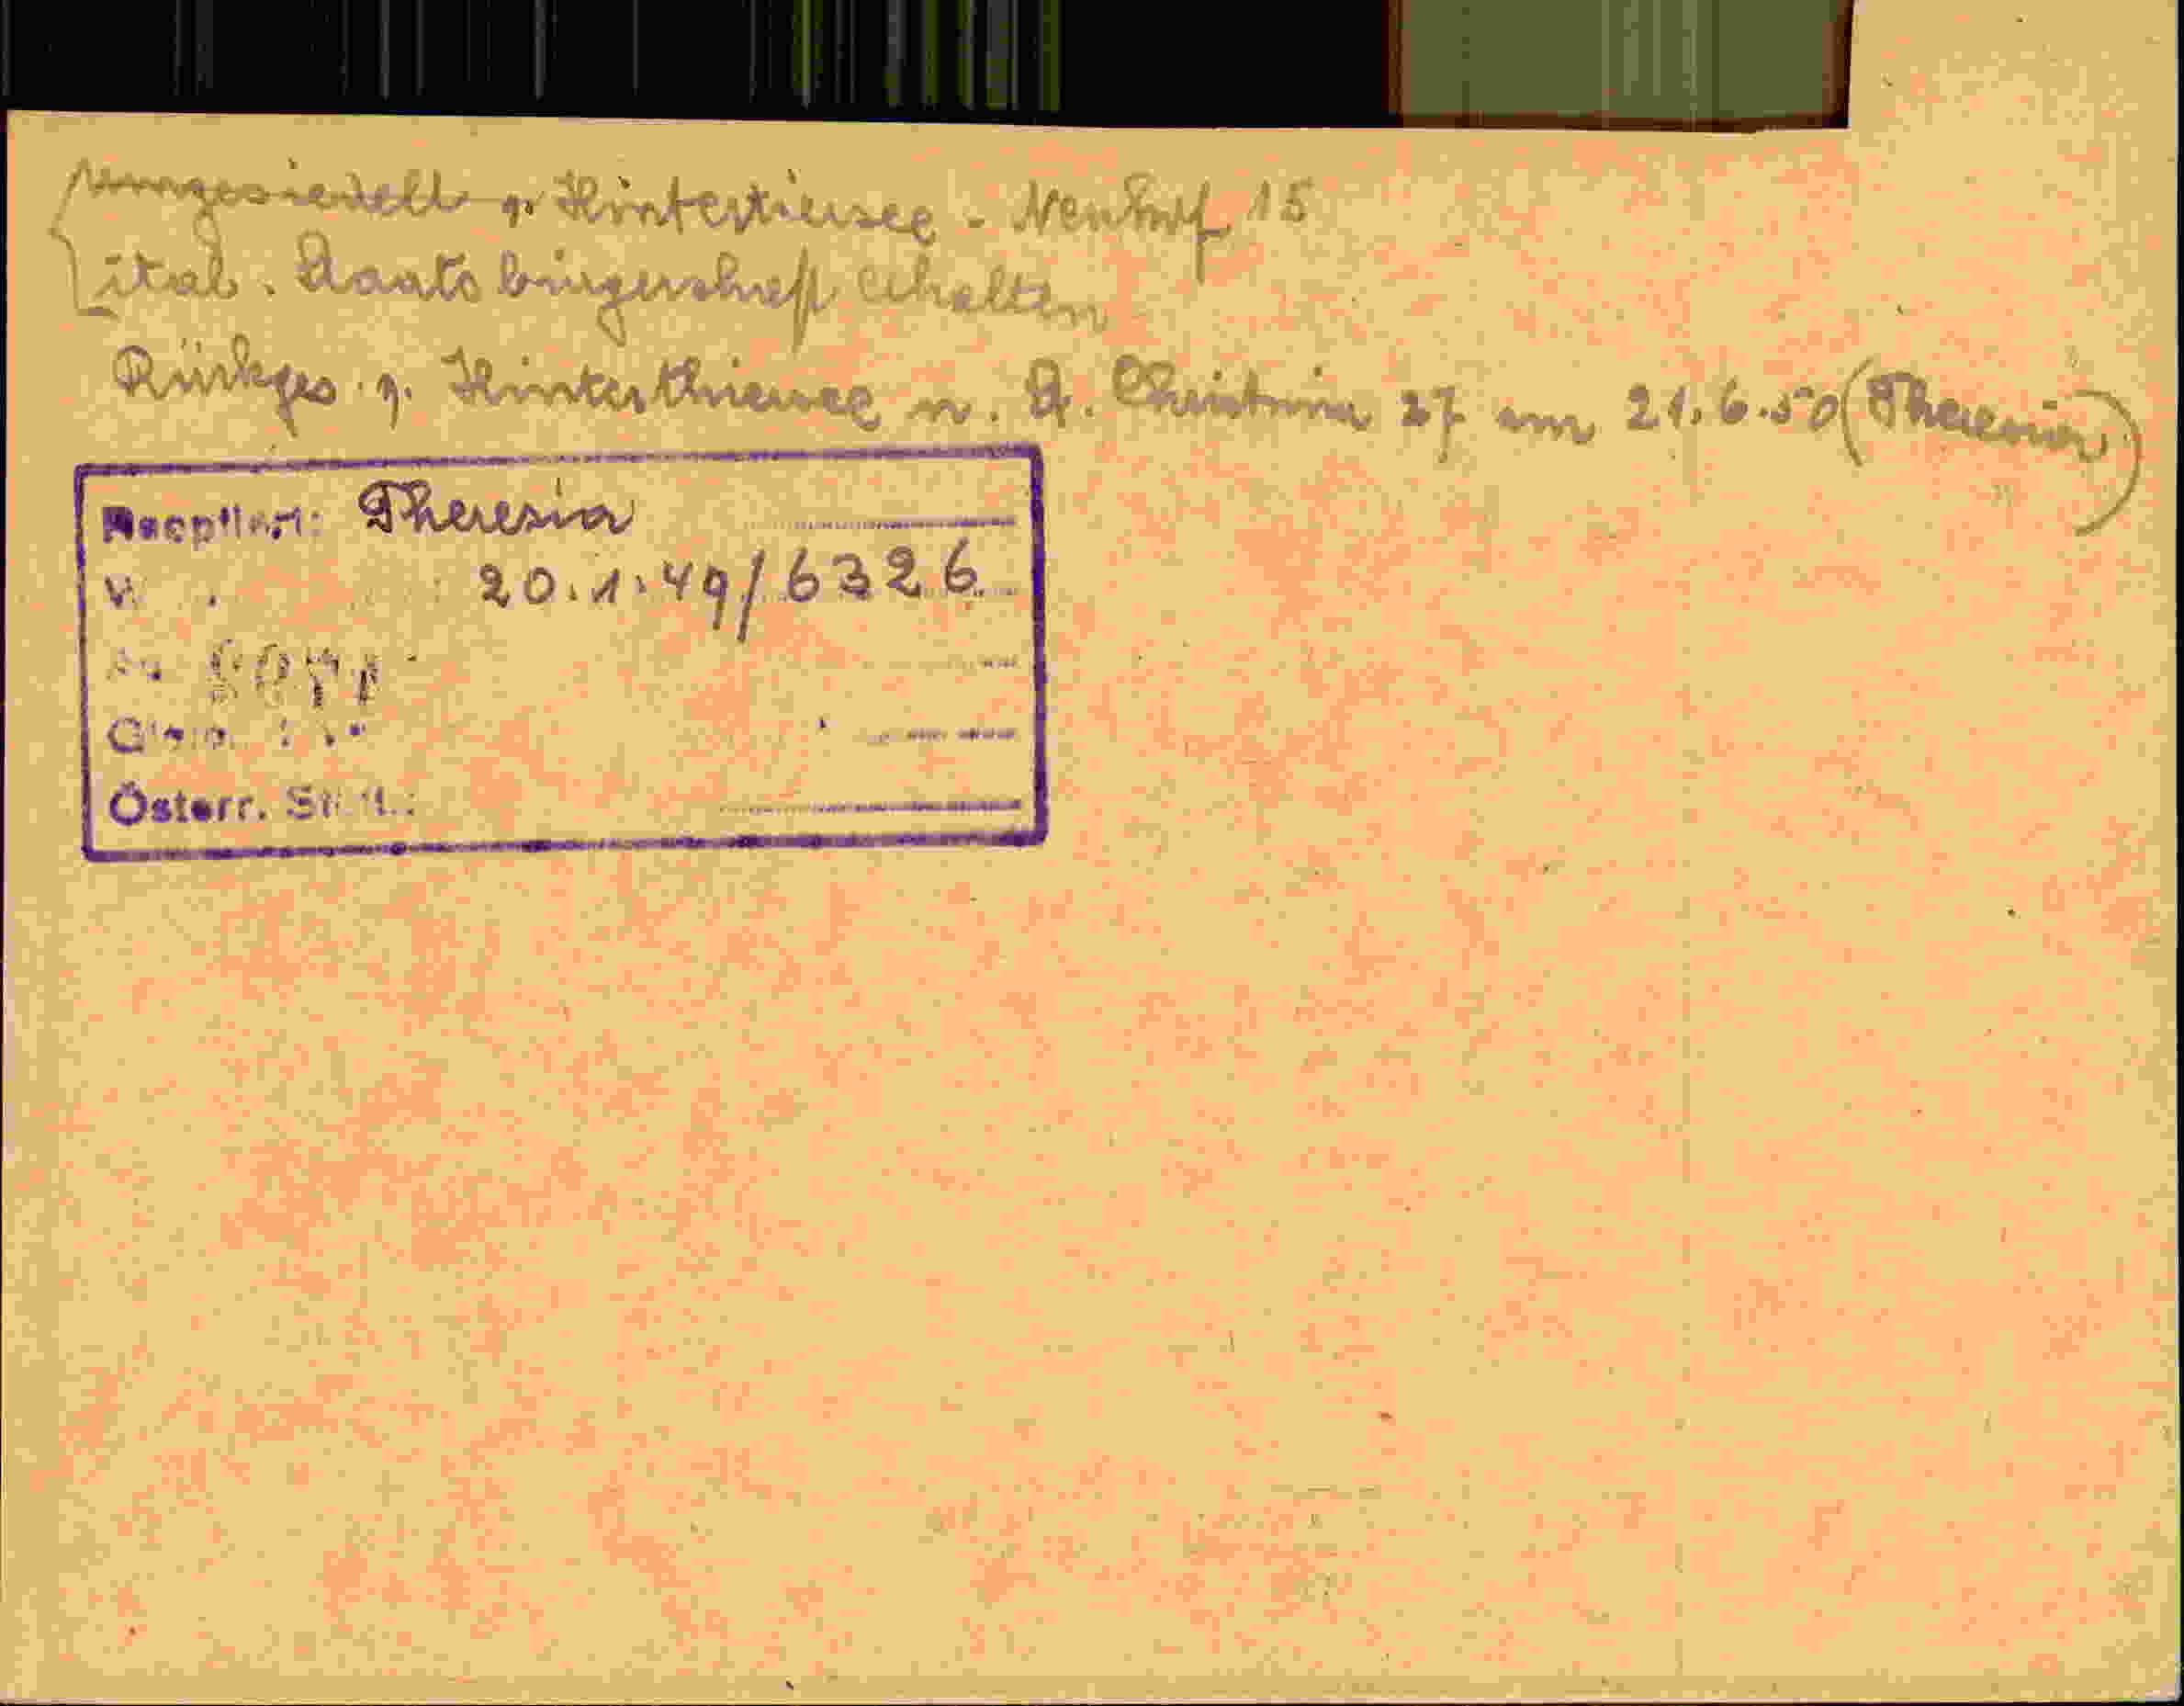 umgesiedelt n. Hintertiersee - Neuhof 15
ital. Staatsbürgerschaft erhalten
Rückges. v. Hinterthiersee n. St. Christina 27 am 21.6.50 (Theresia)
Reoptiert: Theresia
20.1.49/6326
Österr.